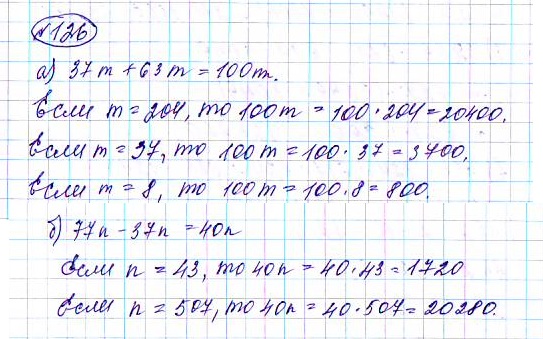 №126
а) 37m + 63m = 100m.
Если m = 204, то 100m = 100·204 = 20400.
Если m = 37, то 100m = 100·37 = 3700.
Если m = 8, то 100m = 100·8 = 800.
б) 77n - 37n = 40n
Если n = 43, то 40n = 40·43 = 1720
Если n = 507, то 40n = 40·507 = 20280.